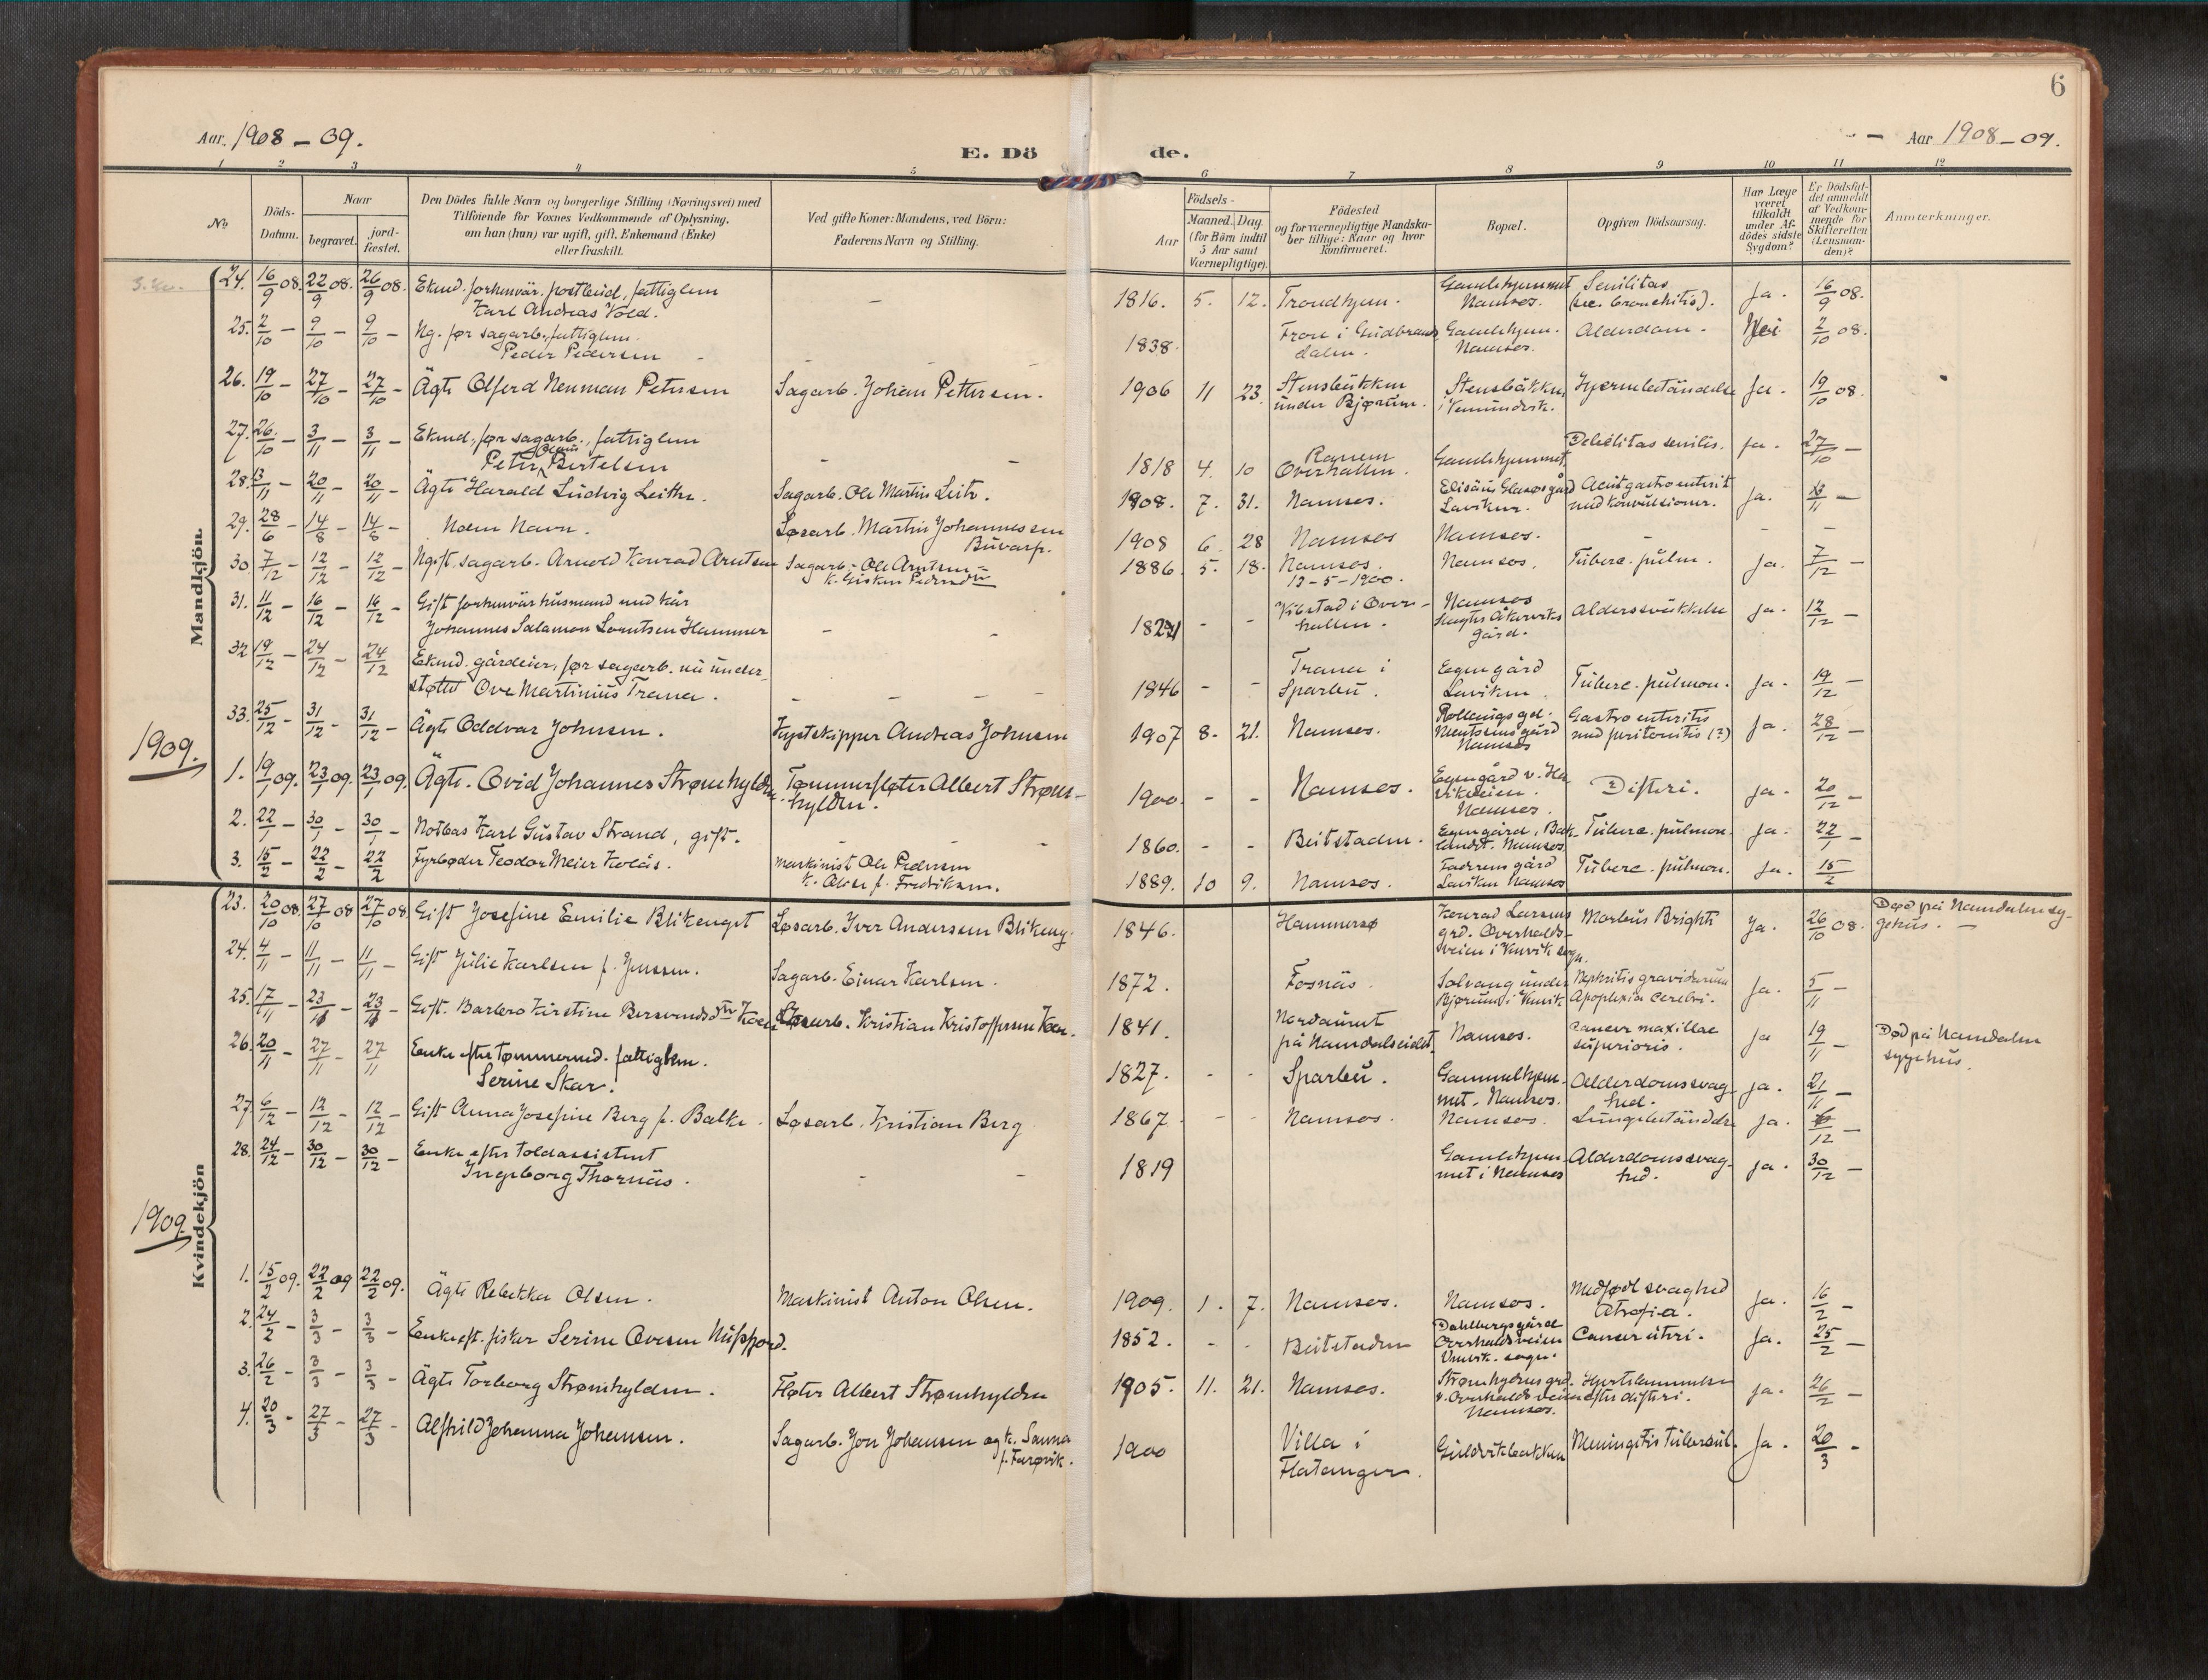 6
Aar 1908 - 09.
E. Dö
de.
Aar 1908 - 09.
1 2 3 4 5 6 7 8 9 10 11 12
No
Döds-
Datum.
Naar
begravet.
jord-
fæstet.
Den Dödes fulde Navn og borgerlige Stilling (Næringsvei) med
Tilföiende for Voxnes Vedkommende af Oplysning,
om han (hun) var ugift, gift, Enkemand (Enke)
eller fraskilt.
Ved gifte Koner: Mandens, ved Börn:
Faderens Navn og Stilling.
Födsels-
Aar
Maaned. Dag.
(for Börn indtil
5 Aar samt
Værnepligtige).
Födested
og for værnepligtige Mandska-
ber tillige: Naar og hvor
konfirmeret.
Bopæl.
Opgiven Dödsaarsag.
Har Læge
været
tilkaldt
under Af-
dödes sidste
Sygdom?
Er Dödsfal-
det anmeldt
af Vedkom-
mende for
Skifteretten
(Lensman-
den)?
Anmærkninger.
Mandkjön
24. 16/9 08. 22/9 08. 26/9 08. Ekmd. forhenvär. postbud, fattiglem
Karl Andreas Vold. - 1816. 5. 12. Trondhjem. Gamlehjemmet Namsos. Senilitas (sec. bronchitis). Ja. 16/9 08.
25. 2/10 - 9/10 - 9/10 - Ug. før sagarb., fattiglem.
Peder Pedersen - 1838. Fron i Gudbrands dalen. Gamlehjem. Namsos. Alderdom. Nei 2/10 08.
26. 19/10 - 27/10 - 27/10 - Ägte Alferd Neuman Petersen Sagarb. Johan Pettersen. 1906 11 23. Stensbäkken under Bjørum. Stensbäkken i Vemundvik. Hjernebetändelse Ja. 19/10 08.
27. 26/10 - 3/11 - 3/11 - Ekmd., før sagarb., fattiglem
Peter Bertelsen - 1818 4. 10 Ranem Overhallen. Gamlehjemmet. Debilitas senilis. Ja. 27/10 -
28. 13/11 - 20/11 - 20/11 - Ägte Harald Ludvig Leithe. Sagarb. Ole Martin Leite. 1908. 7. 31. Namsos. Elisäus Glasøsgård Laviken. Acut gastroenterit med konvulsioner. Ja. 13/11 -
29. 28/6 - 14/8 - 14/8 - Uden Navn. Løsarb. Martin Johannessen
Buvarp. 1908 6. 28 Namsos Namsos. - - -
30. 7/12 - 12/12 - 12/12 - Ugift sagarb. Arnold Konrad Arntsen Sagarb. Ole Arntsen 1886. 5. 18. Namsos. 13-5-1900. Namsos. Tuberc. pulm. Ja. 7/12 -
31. 11/12 - 16/12 - 16/12 - Gift forhenvär husmand med kår
Johannes Salamon Lorntsen Hammer - Overhallen. Namsos gård. Alderssväkkelse Ja. 12/12 -
32 19/12 - 24/12 - 24/12 Ekmd. gårdeier, før sagarb. nu under-
støttet Ove Martinius Trana. - 1846 - - Trana i Sparbu. Egen gård Laviken. Tuberc. pulmon. Ja. 19/12 -
33. 25/12 - 31/12 - 31/12 - Ägte Oddvar Johnsen. Kystskipper Andreas Johnsen 1907 8. 21. Namsos. Namsos Gastroenteritis med peritonitis (?) Ja. 28/12 -
1909.
1. 19/1 09. 23/1 09. 23/1 09. Ägte. Ovid Johannes Strømhylden. Tømmerfløter Albert Strøm-
hylden. 1900. - - Namsos. Egen gård Namsos. Difteri. Ja. 20/12 -
2. 22/1 - 30/1 - 30/1 - Notbas Karl Gustav Strand, gift. - 1860. - - Beitstaden. Egen gård, Bak landet. Namsos. Tuberc. pulmon. Ja. 22/1 -
3. 15/2 - 22/2 - 22/2 Fyrbøder Teodor Meier Kolås. maskinist Ole Pedersen 1889. 10 9. Namsos. Faderens gård Laviken Namsos Tuberc. pulmon. Ja. 15/2
Kvindekjön
23. 20/10 08. 27/10 08 27/10 08. Gift Josefine Emilie Blikenget Løsarb. Iver Andersen Blikeng. 1846. Hammersø Konrad Larsens grd. Overhalds- veien Morbus Brighti Ja. 26/10 08. Død på Namdalen sy-
gehus.
24. 4/11 - 11/11 - 11/11 - Gift Julie Karlsen f. Jenssen. Sagarb. Einar Karlsen. 1872. Fosnäs Solvang under Bjørum i Vemvik Nephritis gravidarum Apoplexia cerebri. Ja. 5/11 -
25. 17/11 - 23/11 - 23/11 - Gift. Barbro Kirstine Løsarb. Kristian Kristoffersen 1841. på Namdalseidet. Namsos. Cancer maxillae superioris. Ja 19/11 - Død på Namdalen
sygehus.
26. 20/11 - 27/11 - 27/11 Enke efter tømmermd. fattiglem.
Serine Skar. 1827. - - Sparbu. Gammelhjem- met. Namsos. Alderdomssvag- hed. Ja. 21/11 -
27 6/12 - 12/12 - 12/12 - Gift Anna Josefine Berg f. Balke. Løsarb. Kristian Berg 1867. - - Namsos. Namsos. Lungebetändelse Ja. 6/12 -
28. 24/12 - 30/12 - 30/12 - Enke efter toldassistent
Ingeborg Thornäs. - 1819 Gamlehjem- met i Namsos Alderdomssvag- hed. Ja. 30/12 -
1909
1. 15/2 09. 22/2 09 22/2 09. Ägte Rebekka Olsen. Maskinist Anton Olsen. 1909. 1. 7. Namsos. Namsos. Medfødt svaghed Atrofia. Ja. 16/2 -
2. 24/2 - 3/3 - 3/3 - Enke eft. fisker Serine Ovesen Nufsfjord. 1852. - - Beitstaden Dahlbergsgård Overhaldsveien Vemvik. sogn. Cancer uteri. Ja. 25/2 -
3. 26/2 - 3/3 - 3/3 - Ägte Torborg Strømhylden. Fløter Albert Strømhylden 1905. 11. 21. Namsos. v. Overhaldsveien Namsos. Hjertelammelse efter difteri. Ja. 26/2 -
4. 20/3 - 27/3 - 27/3 - Alfhild Johanna Johansen. Sagarb. Jon Johansen og k. Sanna
f. Farøvik. 1900 Villa i Flatanger. Guldvikbakken Meningitis tubercul. Ja. 20/3 -